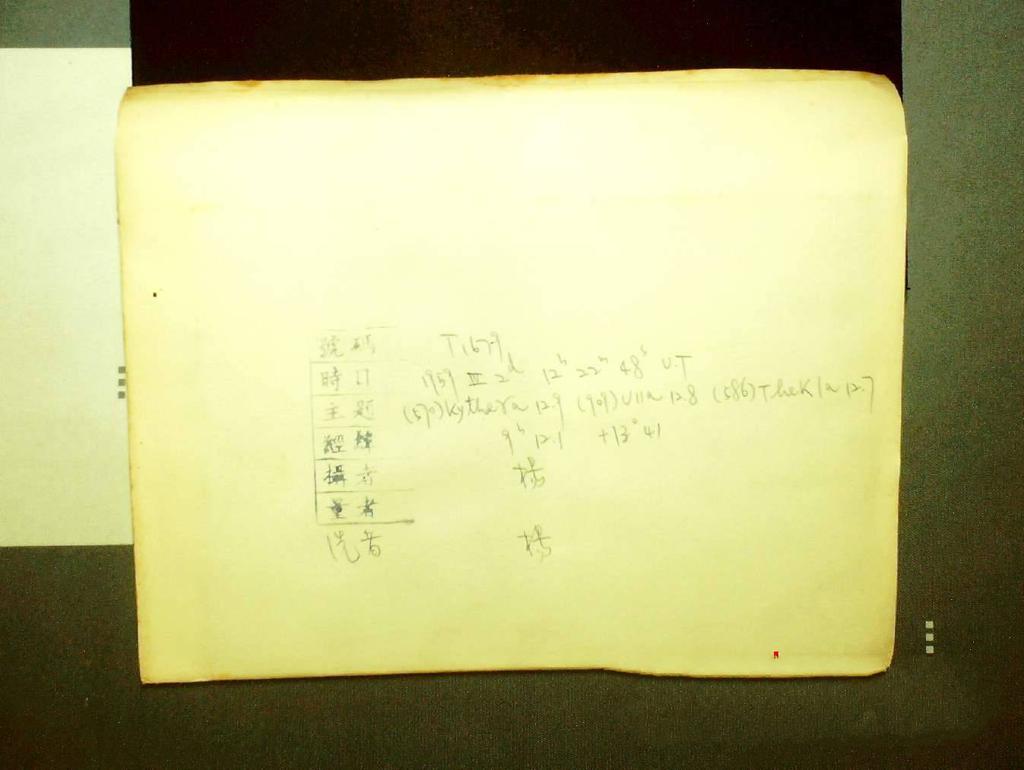 號碼 T1679
時日 1959 III 2ᵈ 12ʰ 22ᵐ 48ˢ U.T
主题 (570) Kythera 12.9 (909) Ulla 12.8 (586) Thekla 12.7
經緯 9ʰ 12.1 +13°41
攝者 楊
量者
洗者 楊